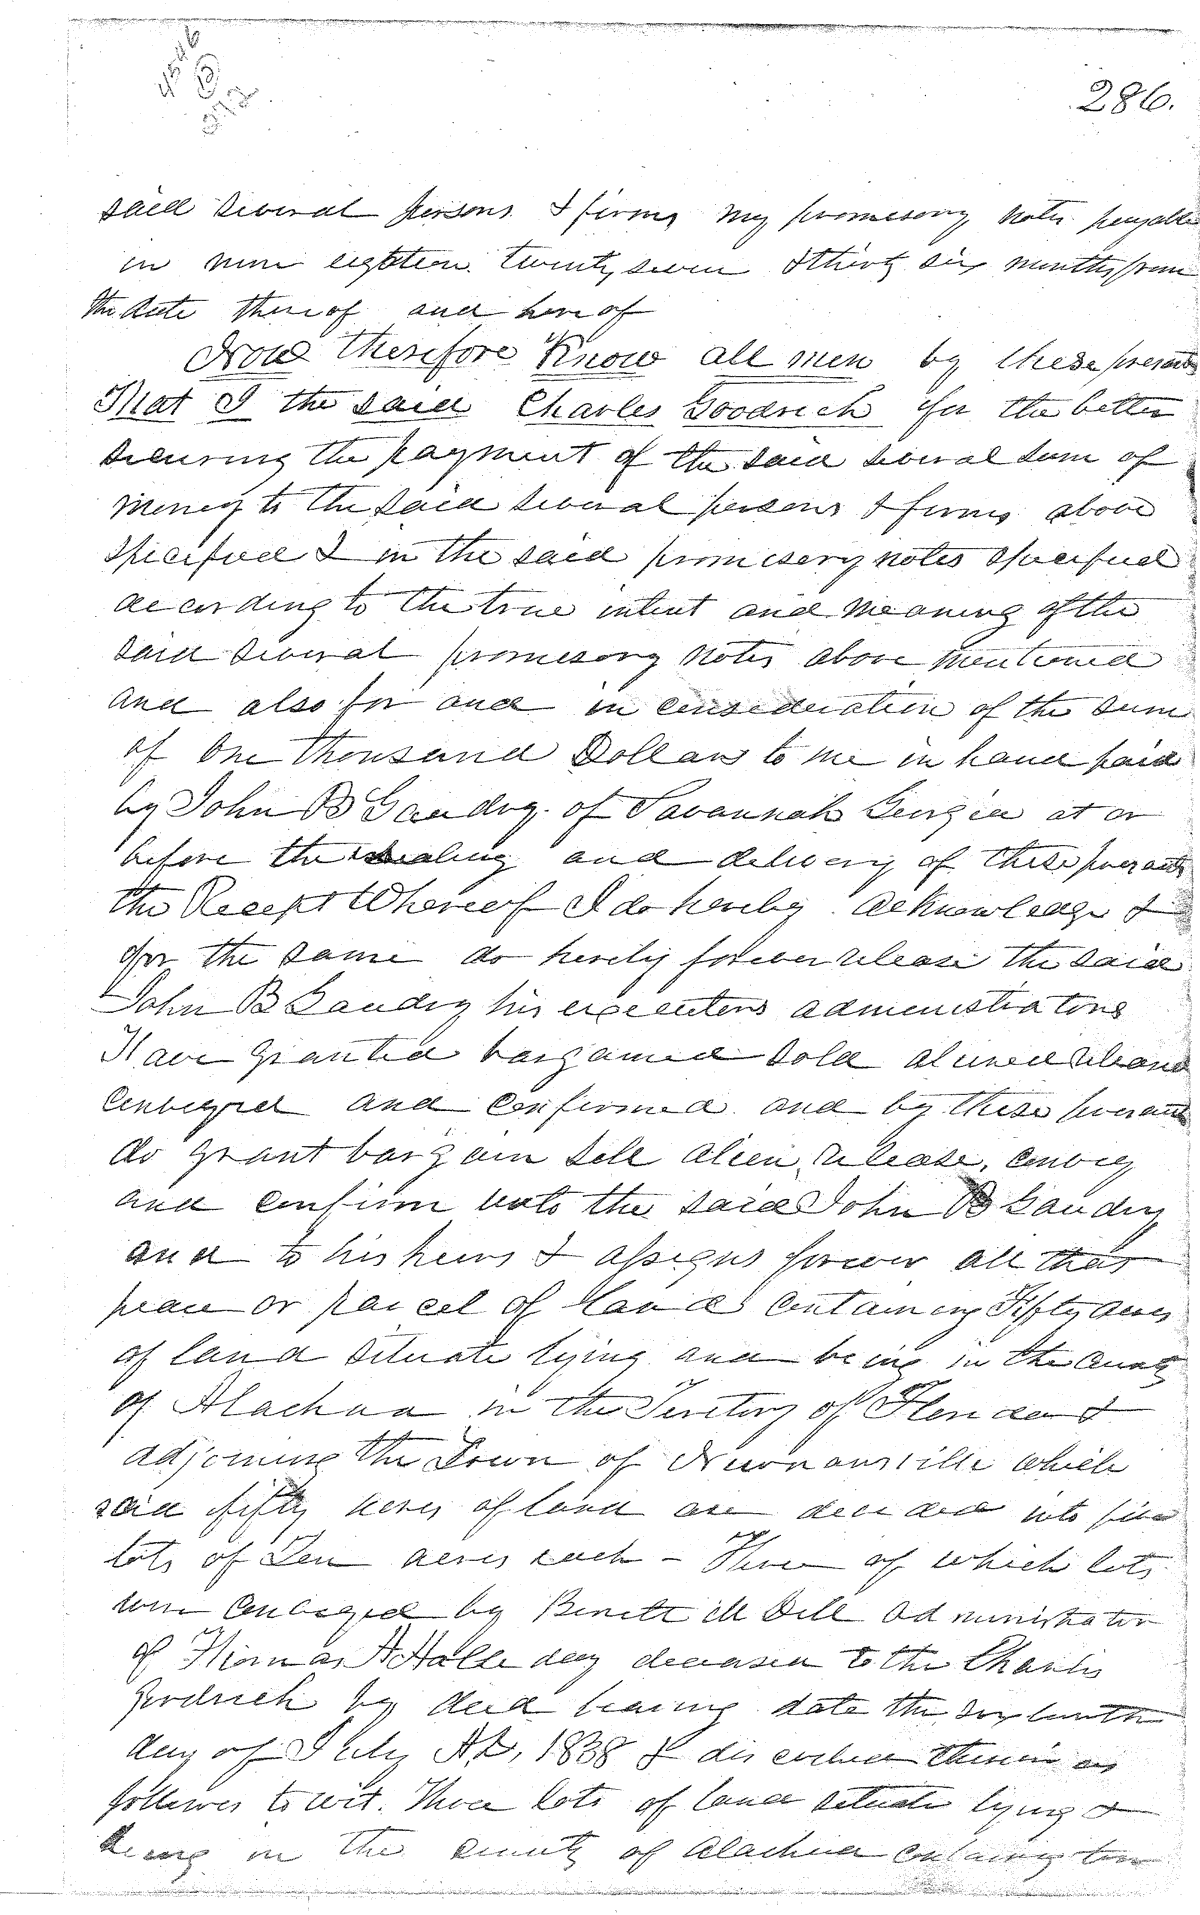 286.
said several persons & firms my promesory notes payable
in nine eighteen twenty seven & thirty six months from
the date thereof and hereof
Now therefore Know all men by these presents
That I the said Charles Goodrich for the better
securing the payment of the said several sum of
money to the said several persons & firms above
specified & in the said promesery notes specified
according to the true intent and meaning of the
said several promesory notes above mentioned
and also for and in consideration of the sum
of One thousand Dollars to me in hand paid
by John B Gaudry of Savannah Georgia at or
before the sealing and delivery of these presents
the Recept Whereof I do hereby acknowledge &
for the same do hereby forever release the said
John B Gaudry his executors administrators
Have granted bargained sold aliened released
conveyed and confirmed and by these presents
do grant bargain sell alien, release, convey
and confirm unto the said John B Gaudry
and to his heirs & assigns forever all that
peace or parcel of land containing Fifty acres
of land situate lying and being in the county
of Alachua in the Territory of Florida &
adjoining the Town of Newnansville which
said fifty acres of land are devided into five
lots of Ten acres each - Three of which lots
were conveyed by Benett M Dell administrator
of Thomas A Halliday deceased to the Charles
Goodrich by deed bearing date the day of July A.D, 1838 & discribed therein as
follows to wit. Three lots of land situate lying &
being in the county of Alachua containing ten